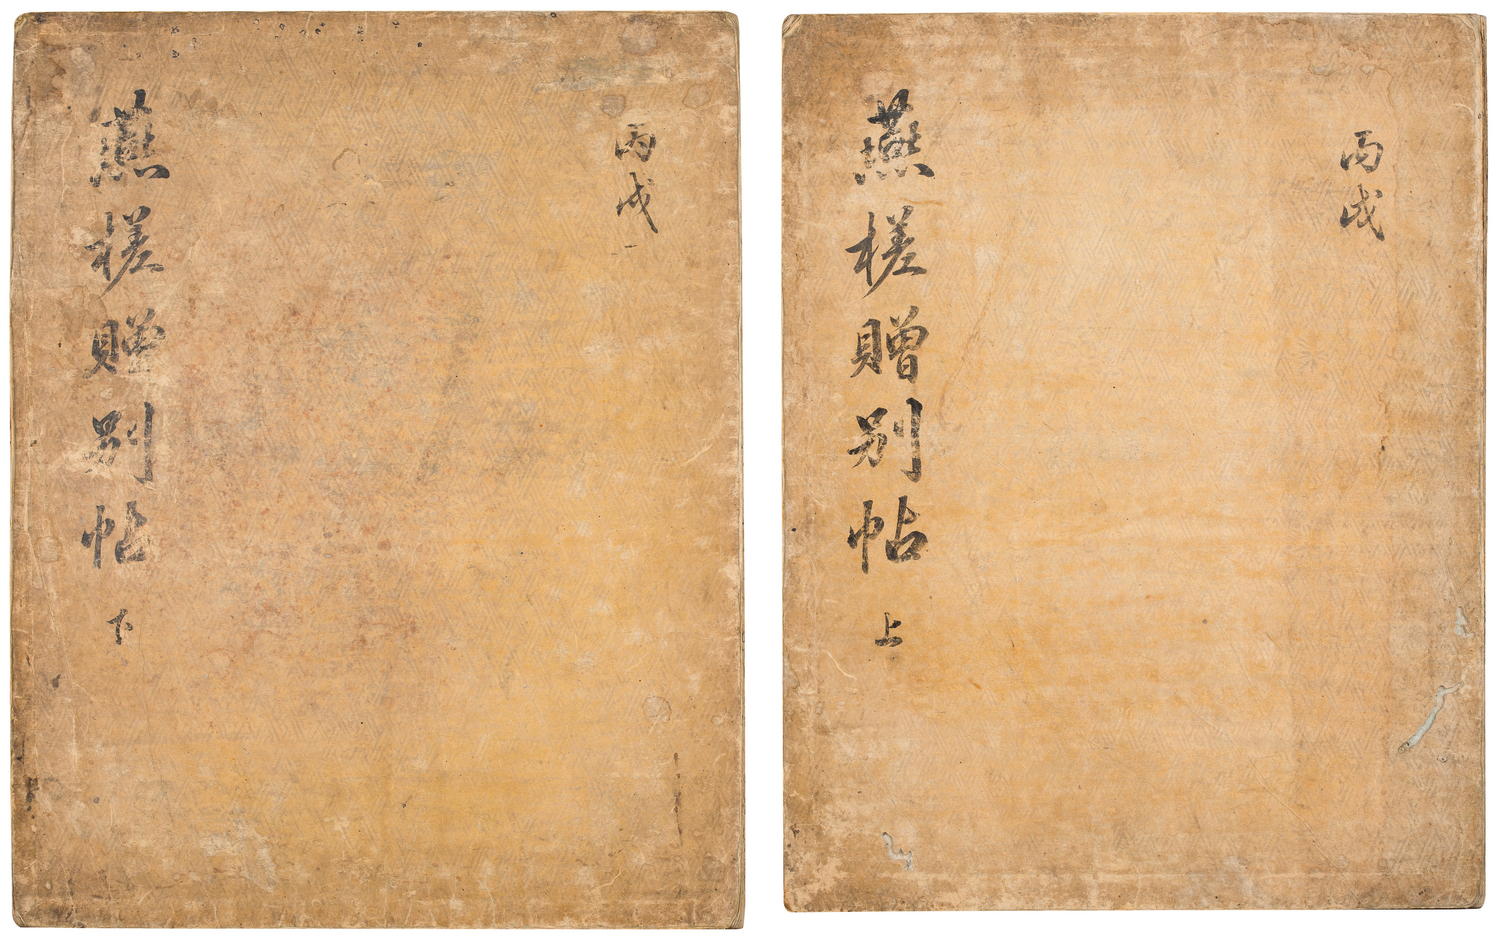 丙戌
燕槎贈別帖 上
丙戌
燕槎贈別帖 下